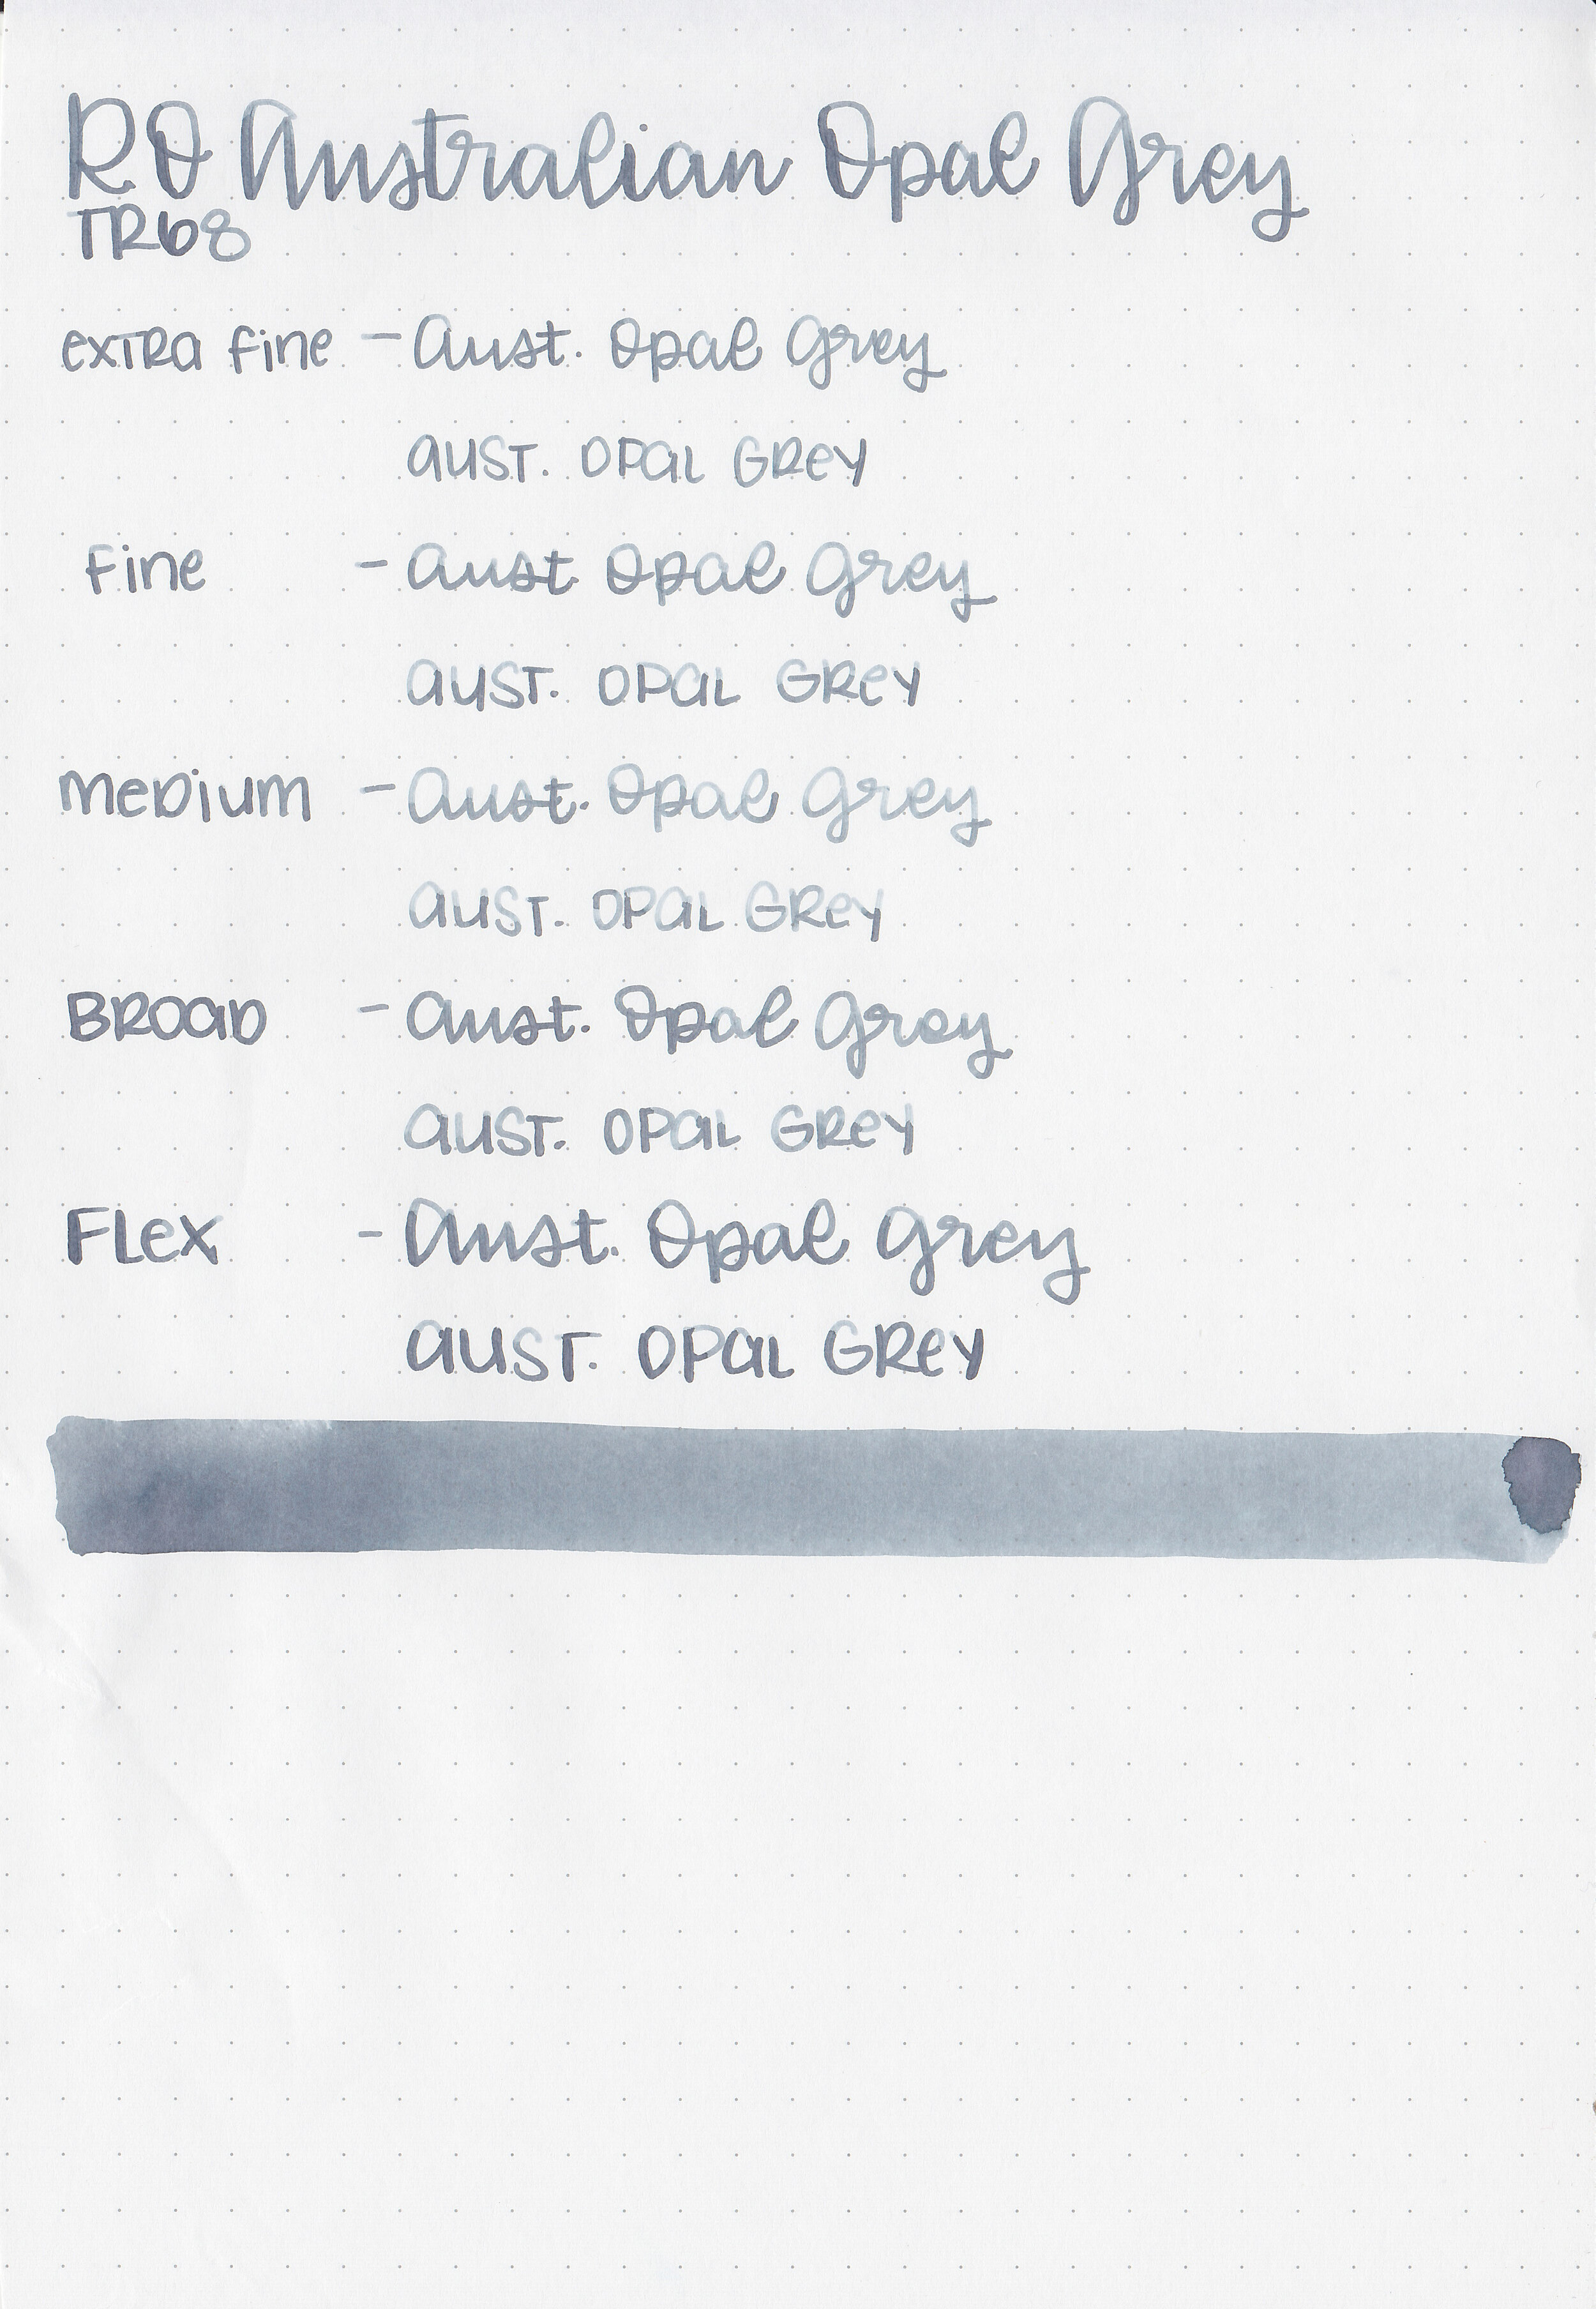 RO Australian Opal Grey
TR68
extra fine - Aust. Opal Grey
AUST. OPAL GREY
fine - Aust. Opal Grey
AUST. OPAL GREY
medium - Aust. Opal Grey
AUST. OPAL GREY
BROAD - Aust. Opal Grey
AUST. OPAL GREY
FLEX - Aust. Opal Grey
AUST. OPAL GREY